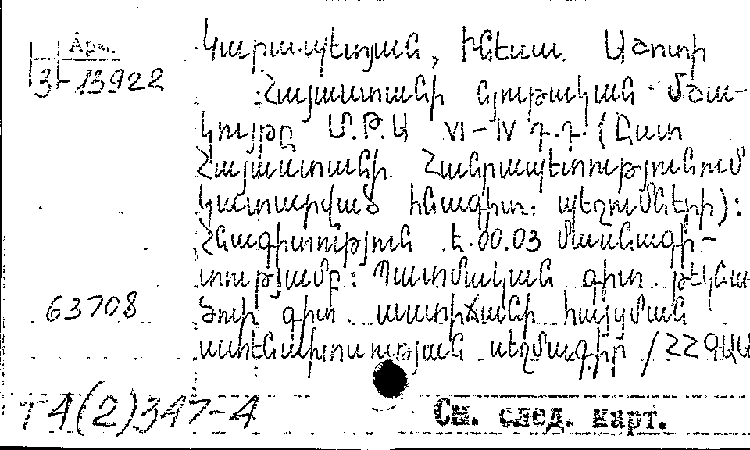 Արմ.
3-13922
Կարապետյան, Ինեսա Աշոտի
Հայաստանի նյութական մշա-
կույթը Մ.Թ.Ա VI-IV դ.դ (Ըստ
Հայաստանի Հանրապետությունում
կատարված հնագիտ. պեղումների):
Հնագիտություն է.00.03 մասնագի-
տությամբ: Պատմական գիտ. թեկնա
ծուի գիտ. աստիճանի հայցման
ատենախոսության սեղմագիր /ՀՀ ԳԱԱ
63708
Т4(2)347-4
См. след. карт.